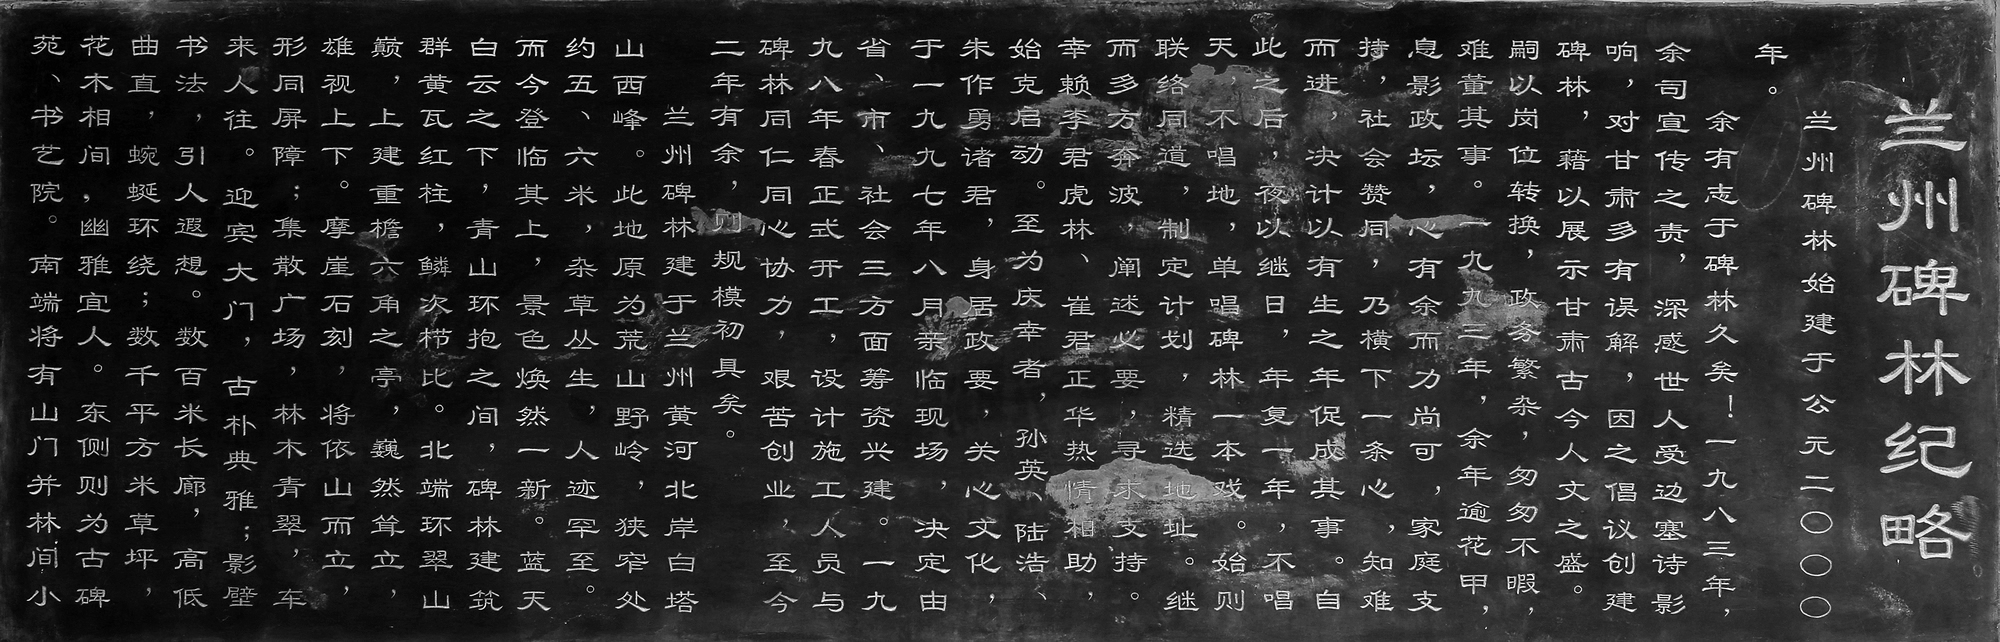 兰州碑林纪略
兰州碑林始建于公元二〇〇〇
年。
余有志于碑林久矣！一九八三年，
余司宣传之责，深感世人受边塞诗影
响，对甘肃多有误解，因之倡议创建
碑林，藉以展示甘肃古今人文之盛。
嗣以岗位转换，政务繁杂，匆匆不暇，
难董其事。一九九三年，余年逾花甲，
息影政坛，心有余而力尚可，家庭支
持，社会赞同，乃横下一条心，知难
而进，决计以有生之年促成其事。自
此之后，夜以继日，年复一年，不唱
天，不唱地，单唱碑林一本戏。始则
联络同道，制定计划，精选地址。继
而多方奔波，阐述必要，寻求支持。
幸赖李君虎林、崔君正华热情相助，
始克启动。至为庆幸者，孙英、陆浩、
朱作勇诸君，身居政要，关心文化，
于一九九七年八月亲临现场，决定由
省、市、社会三方面筹资兴建。一九
九八年春正式开工，设计施工人员与
碑林同仁同心协力，艰苦创业，至今
二年有余，则规模初具矣。
兰州碑林建于兰州黄河北岸白塔
山西峰。此地原为荒山野岭，狭窄处
约五、六米，杂草丛生，人迹罕至。
而今登临其上，景色焕然一新。蓝天
白云之下，青山环抱之间，碑林建筑
群黄瓦红柱，鳞次栉比。北端环翠山
巅，上建重檐六角之亭，巍然耸立，
雄视上下。摩崖石刻，将依山而立，
形同屏障；集散广场，林木青翠，车
来人往。迎宾大门，古朴典雅；影壁
书法，引人遐想。数百米长廊，高低
曲直，蜿蜒环绕；数千平方米草坪，
花木相间，幽雅宜人。东侧则为古碑
苑、书艺院。南端将有山门并林间小